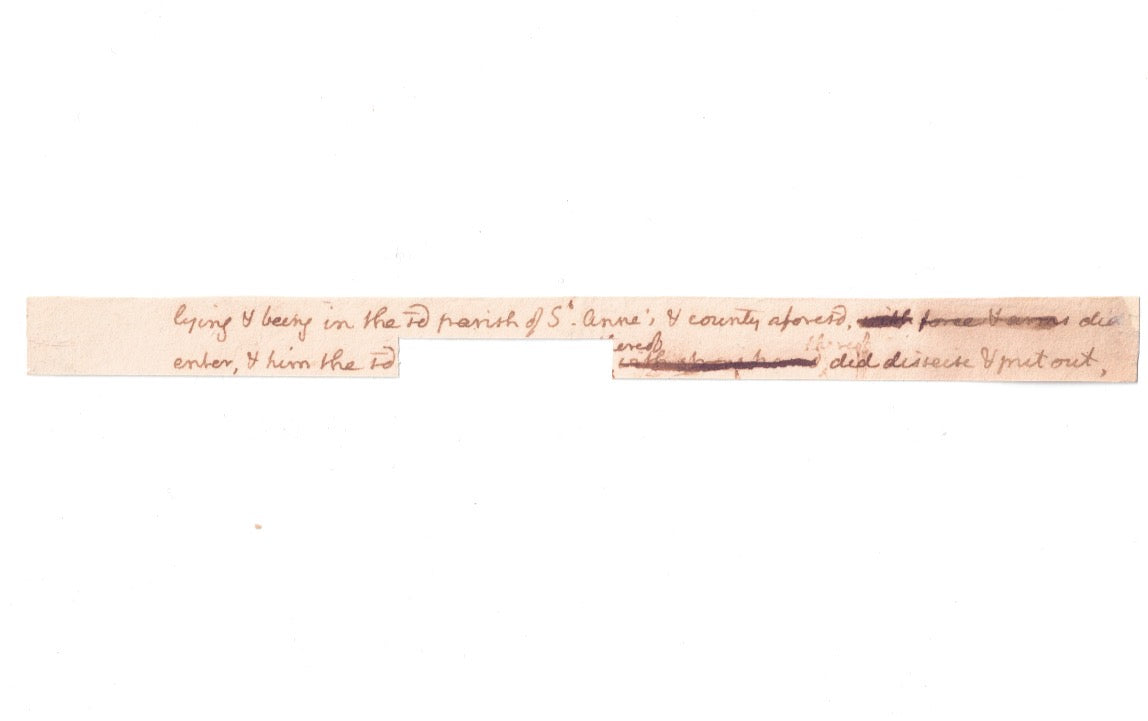 lying & being in the sd parish of St. Anne's & county aforesd, with force & arms did
ereof thereof
enter, & him the sd did disseise & put out,